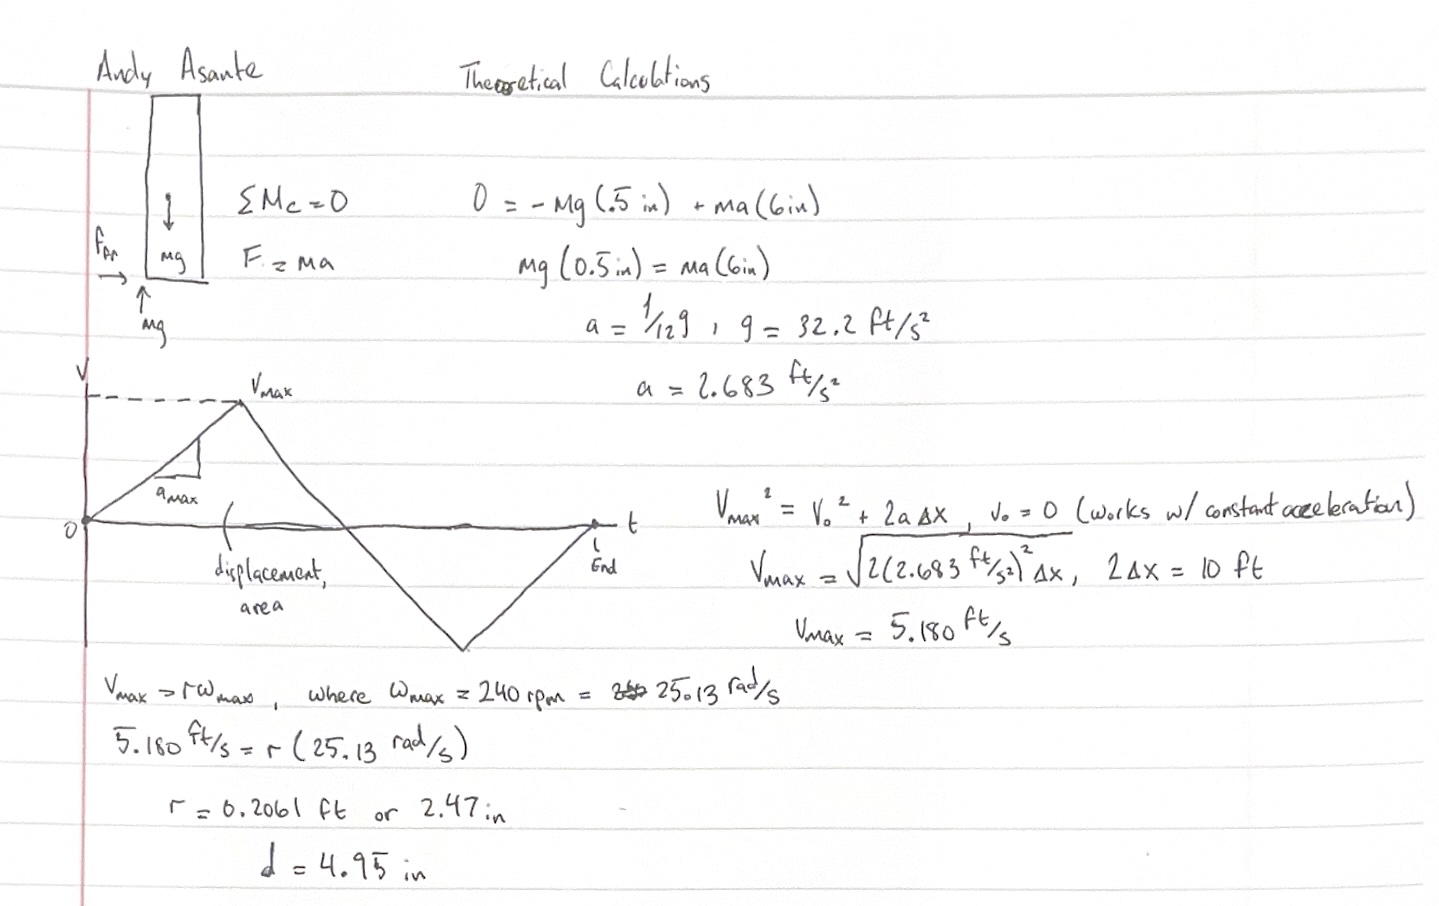 Andy Asante
Theoretical Calculations
ΣMc = 0
0 = -Mg (.5 in) + ma (6in)
Ffr
Mg
F = ma
mg (0.5 in) = ma (6in)
Mg
a = 1/12 g , g = 32.2 ft/s²
a = 2.683 ft/s²
V
Vmax
amax
0
t
End
displacement,
area
Vmax² = V₀² + 2a Δx , V₀ = 0 (works w/ constant acceleration)
Vmax = √2(2.683 ft/s²)² Δx , 2Δx = 10 ft
Vmax = 5.180 ft/s
Vmax = rωmax , where ωmax = 240 rpm = 25.13 rad/s
5.180 ft/s = r (25.13 rad/s)
r = 0.2061 ft or 2.47 in
d = 4.95 in